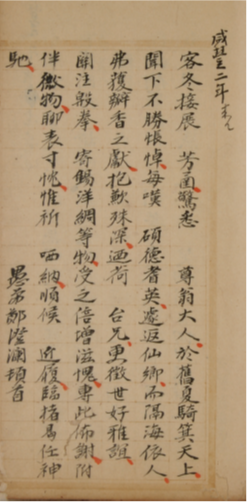 咸豐二年
客冬接展 芳函驚悉 尊翁大人於舊夏騎箕天上
聞下不勝悵悼每嘆 碩德者英遽返仙鄉而隔海依人
弗獲瓣香之獻抱歉殊深迺荷 台兄更徵世好雅誼
關注殷拳 寄錫洋綢等物受之倍增滋愧專此佈謝附
伴微物聊表寸忱惟祈 哂納順候 近履臨楮曷任神
馳
愚弟鄭瀅瀾頓首